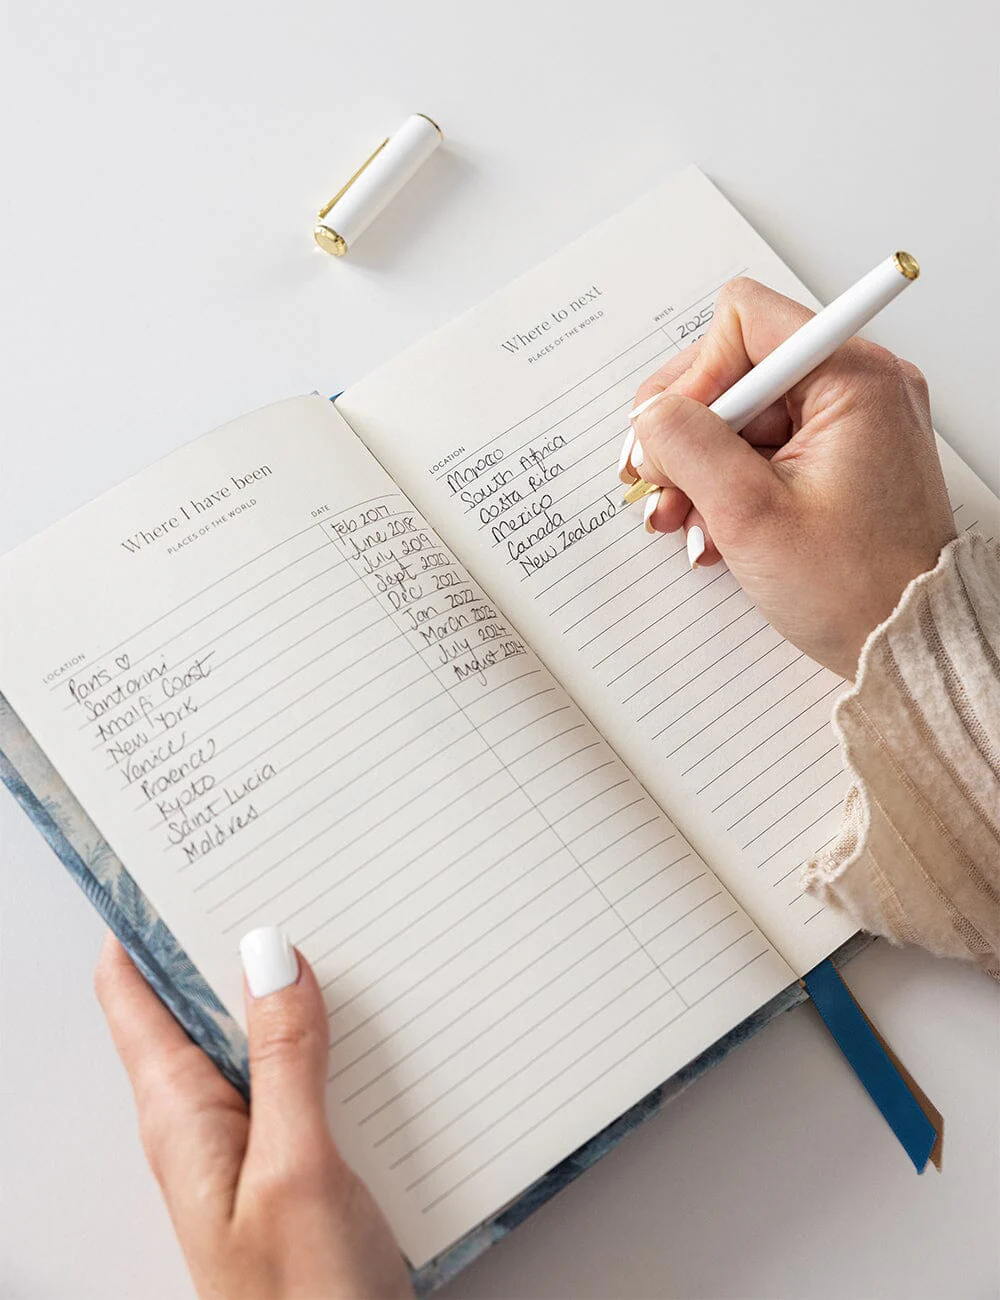 Where I have been
PLACES OF THE WORLD
LOCATION DATE
Paris ♡ Feb 2017.
Santorini June 2018
Amalfi Coast July 2019
New York Sept 2020
Venice Dec 2021
Provence Jan 2022
Kyoto March 2023
Saint Lucia July 2024
Maldives August 2024
Where to next
PLACES OF THE WORLD
LOCATION WHEN
Morocco 2025
South Africa
Costa Rica
Mexico
Canada
New Zealand